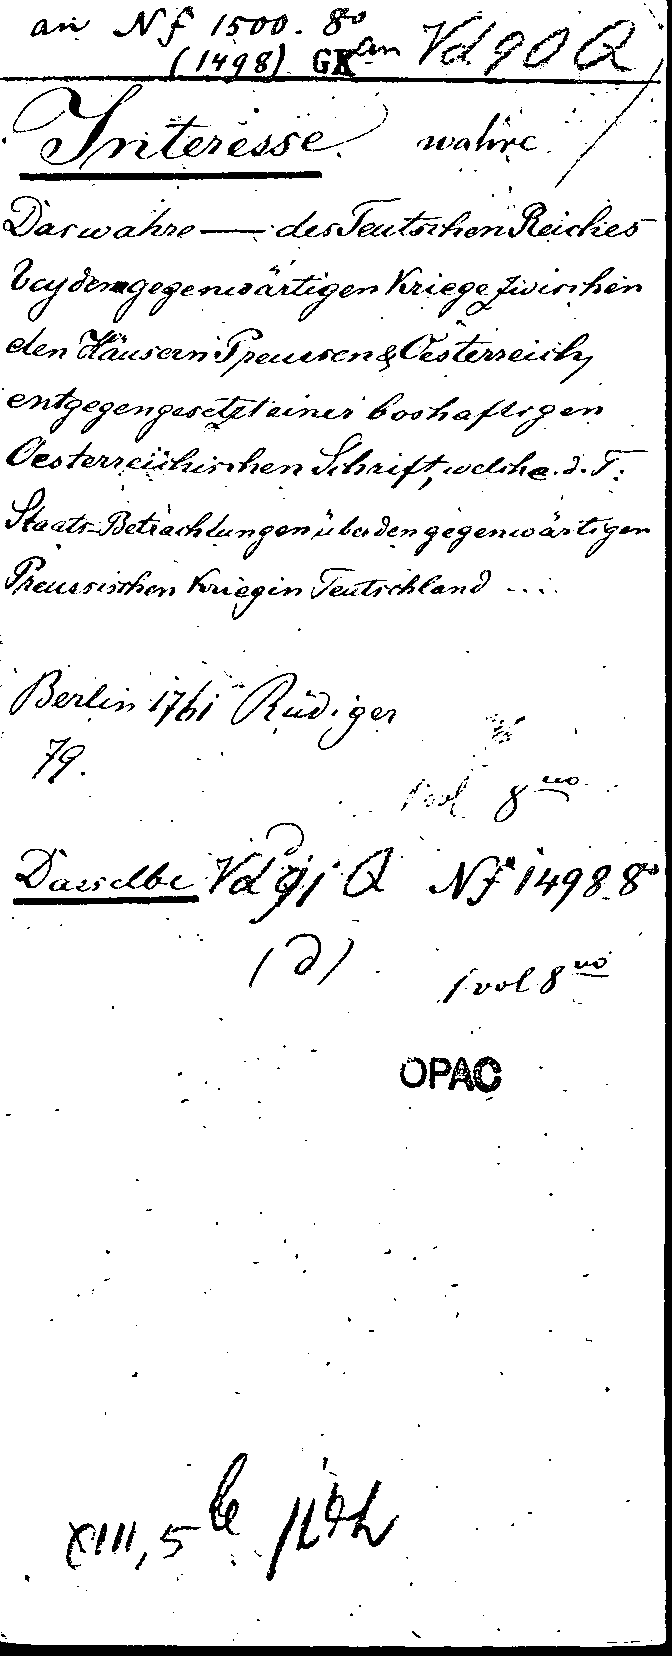 an Nf 1500. 8º
(1498) GK an Vd 90 Q
Interesse. wahre
Das wahre — des Teutschen Reiches
bey dem gegenwärtigen Kriege zwischen
den Häusern Preussen & Oesterreich,
entgegengesetzt einer boshaftigen
Oesterreichischen Schrift, welche d. T:
Staats-Betrachtungen über den gegenwärtigen
Preussischen Krieg in Teutschland ...
Berlin 1761 Rüdiger
79.
1 vol 8vo
Dasselbe Vd 91 Q Nf 1498. 8º
(d)
1 vol 8vo
OPAC
XIII, 5